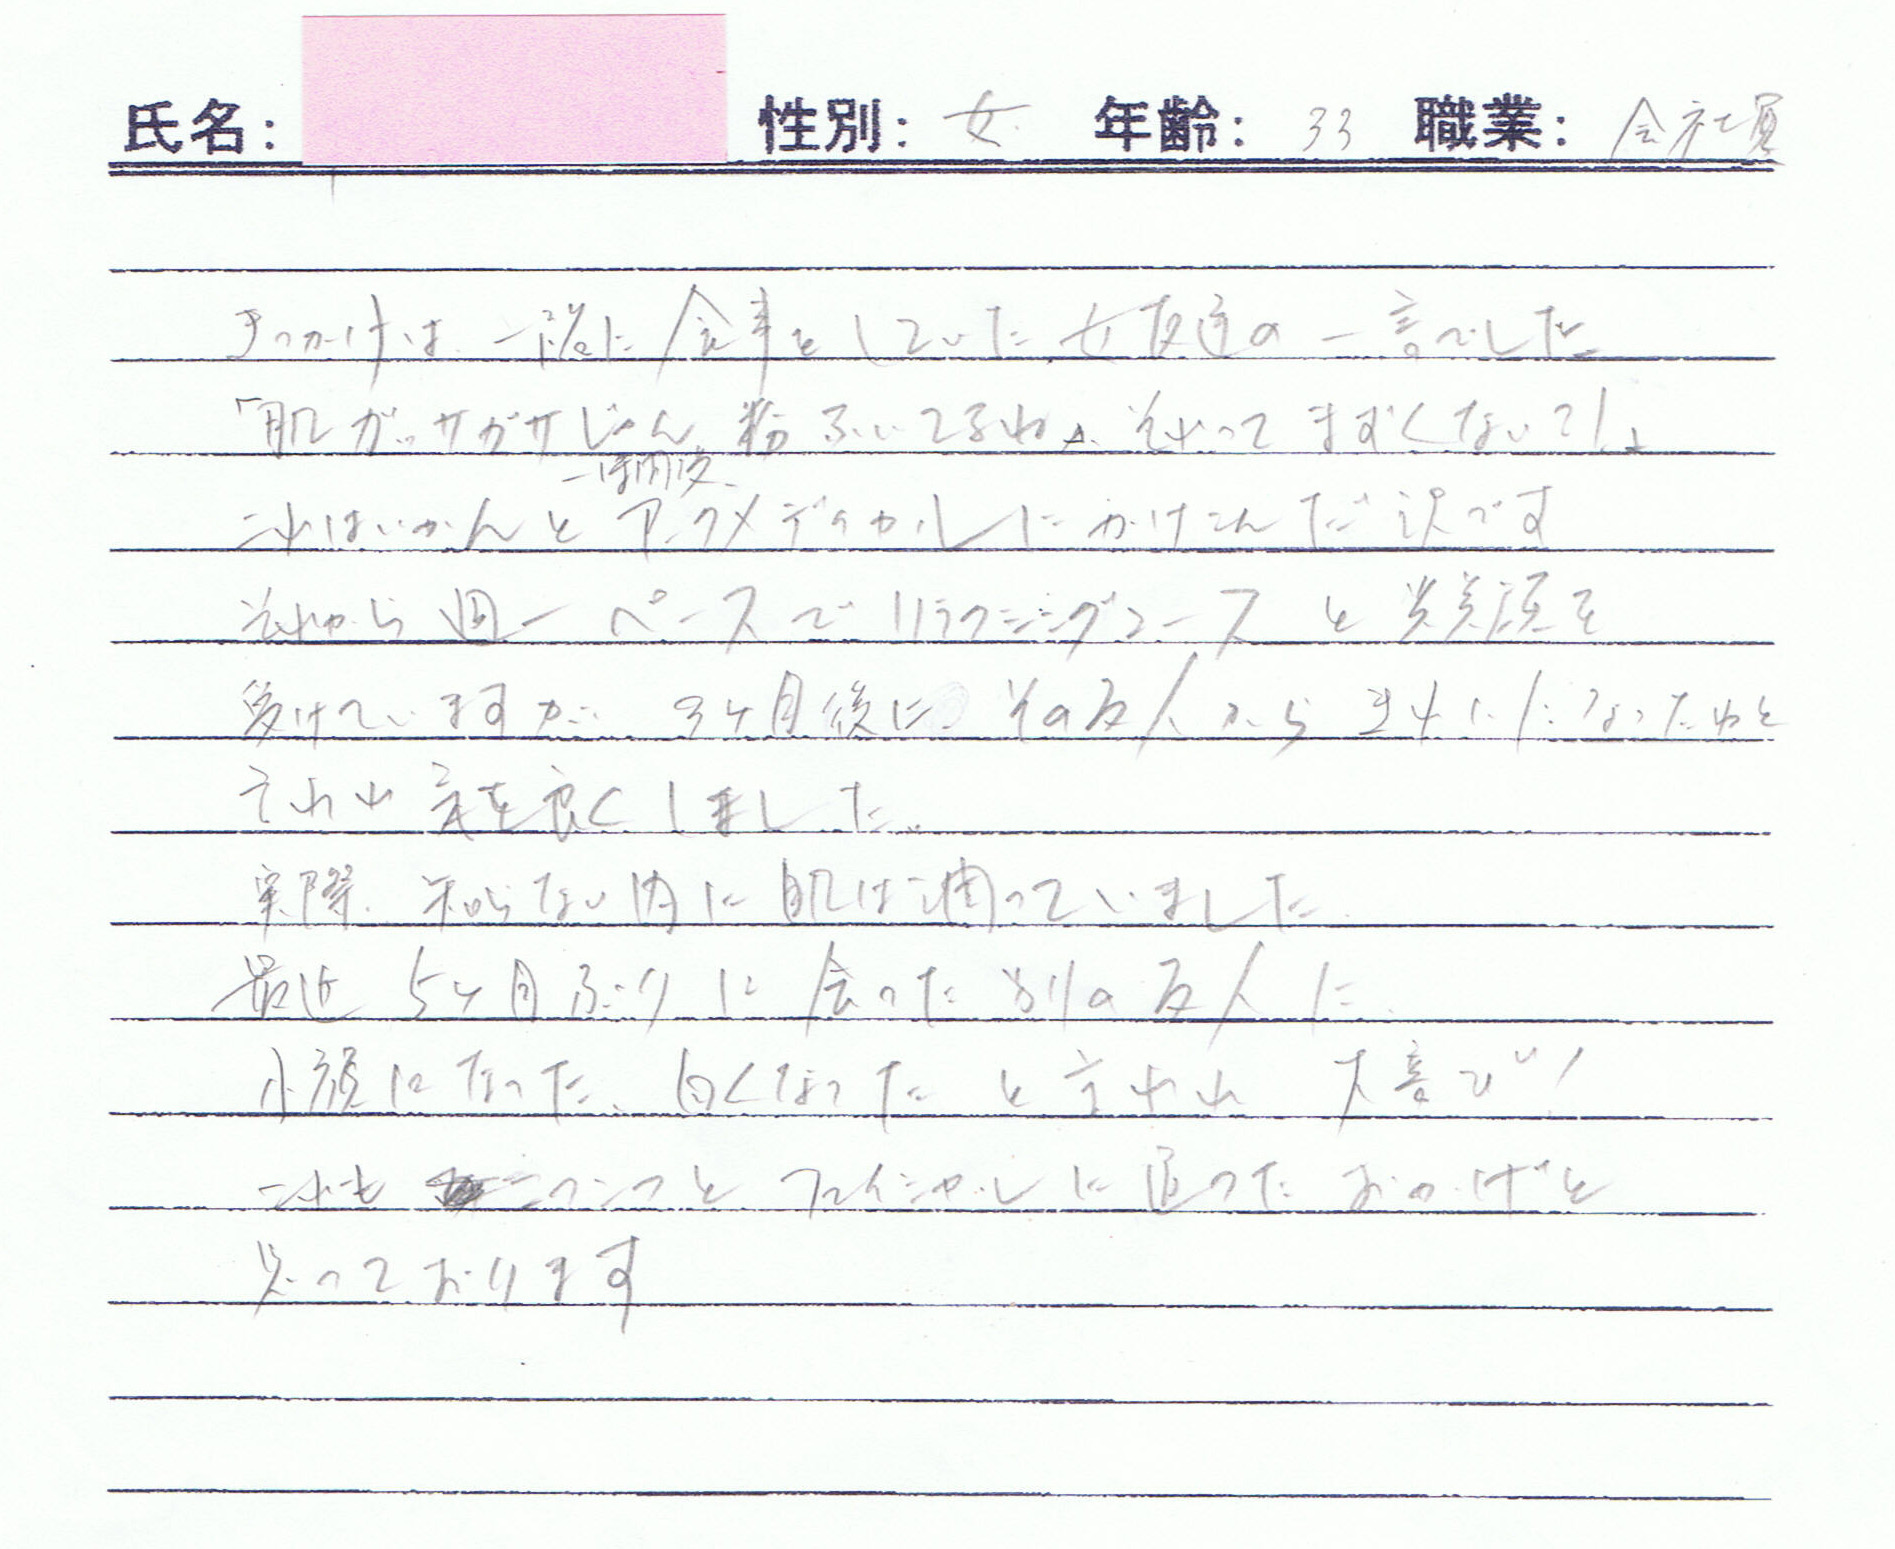 氏名： 性別：女 年齢：33 職業：会社員
きっかけは一緒に食事をしていた女友達の一言でした
「肌ガッサガサじゃん。粉ふいてるわよ。それってまずくない?!」
一週間後、
これはいかんとアクメディカルにかけこんだ訳です
それから週一ペースでリラクシングコースと美顔を
受けていますが、3ヶ月後にその友人からきれいになったねと
言われ気を良くしました。
実際、知らない内に肌は潤っていました。
最近5ヶ月ぶりに会った別の友人に、
小顔になった、白くなったと言われ大喜び！
これもコツコツとフェイシャルに通ったおかげと
思っております